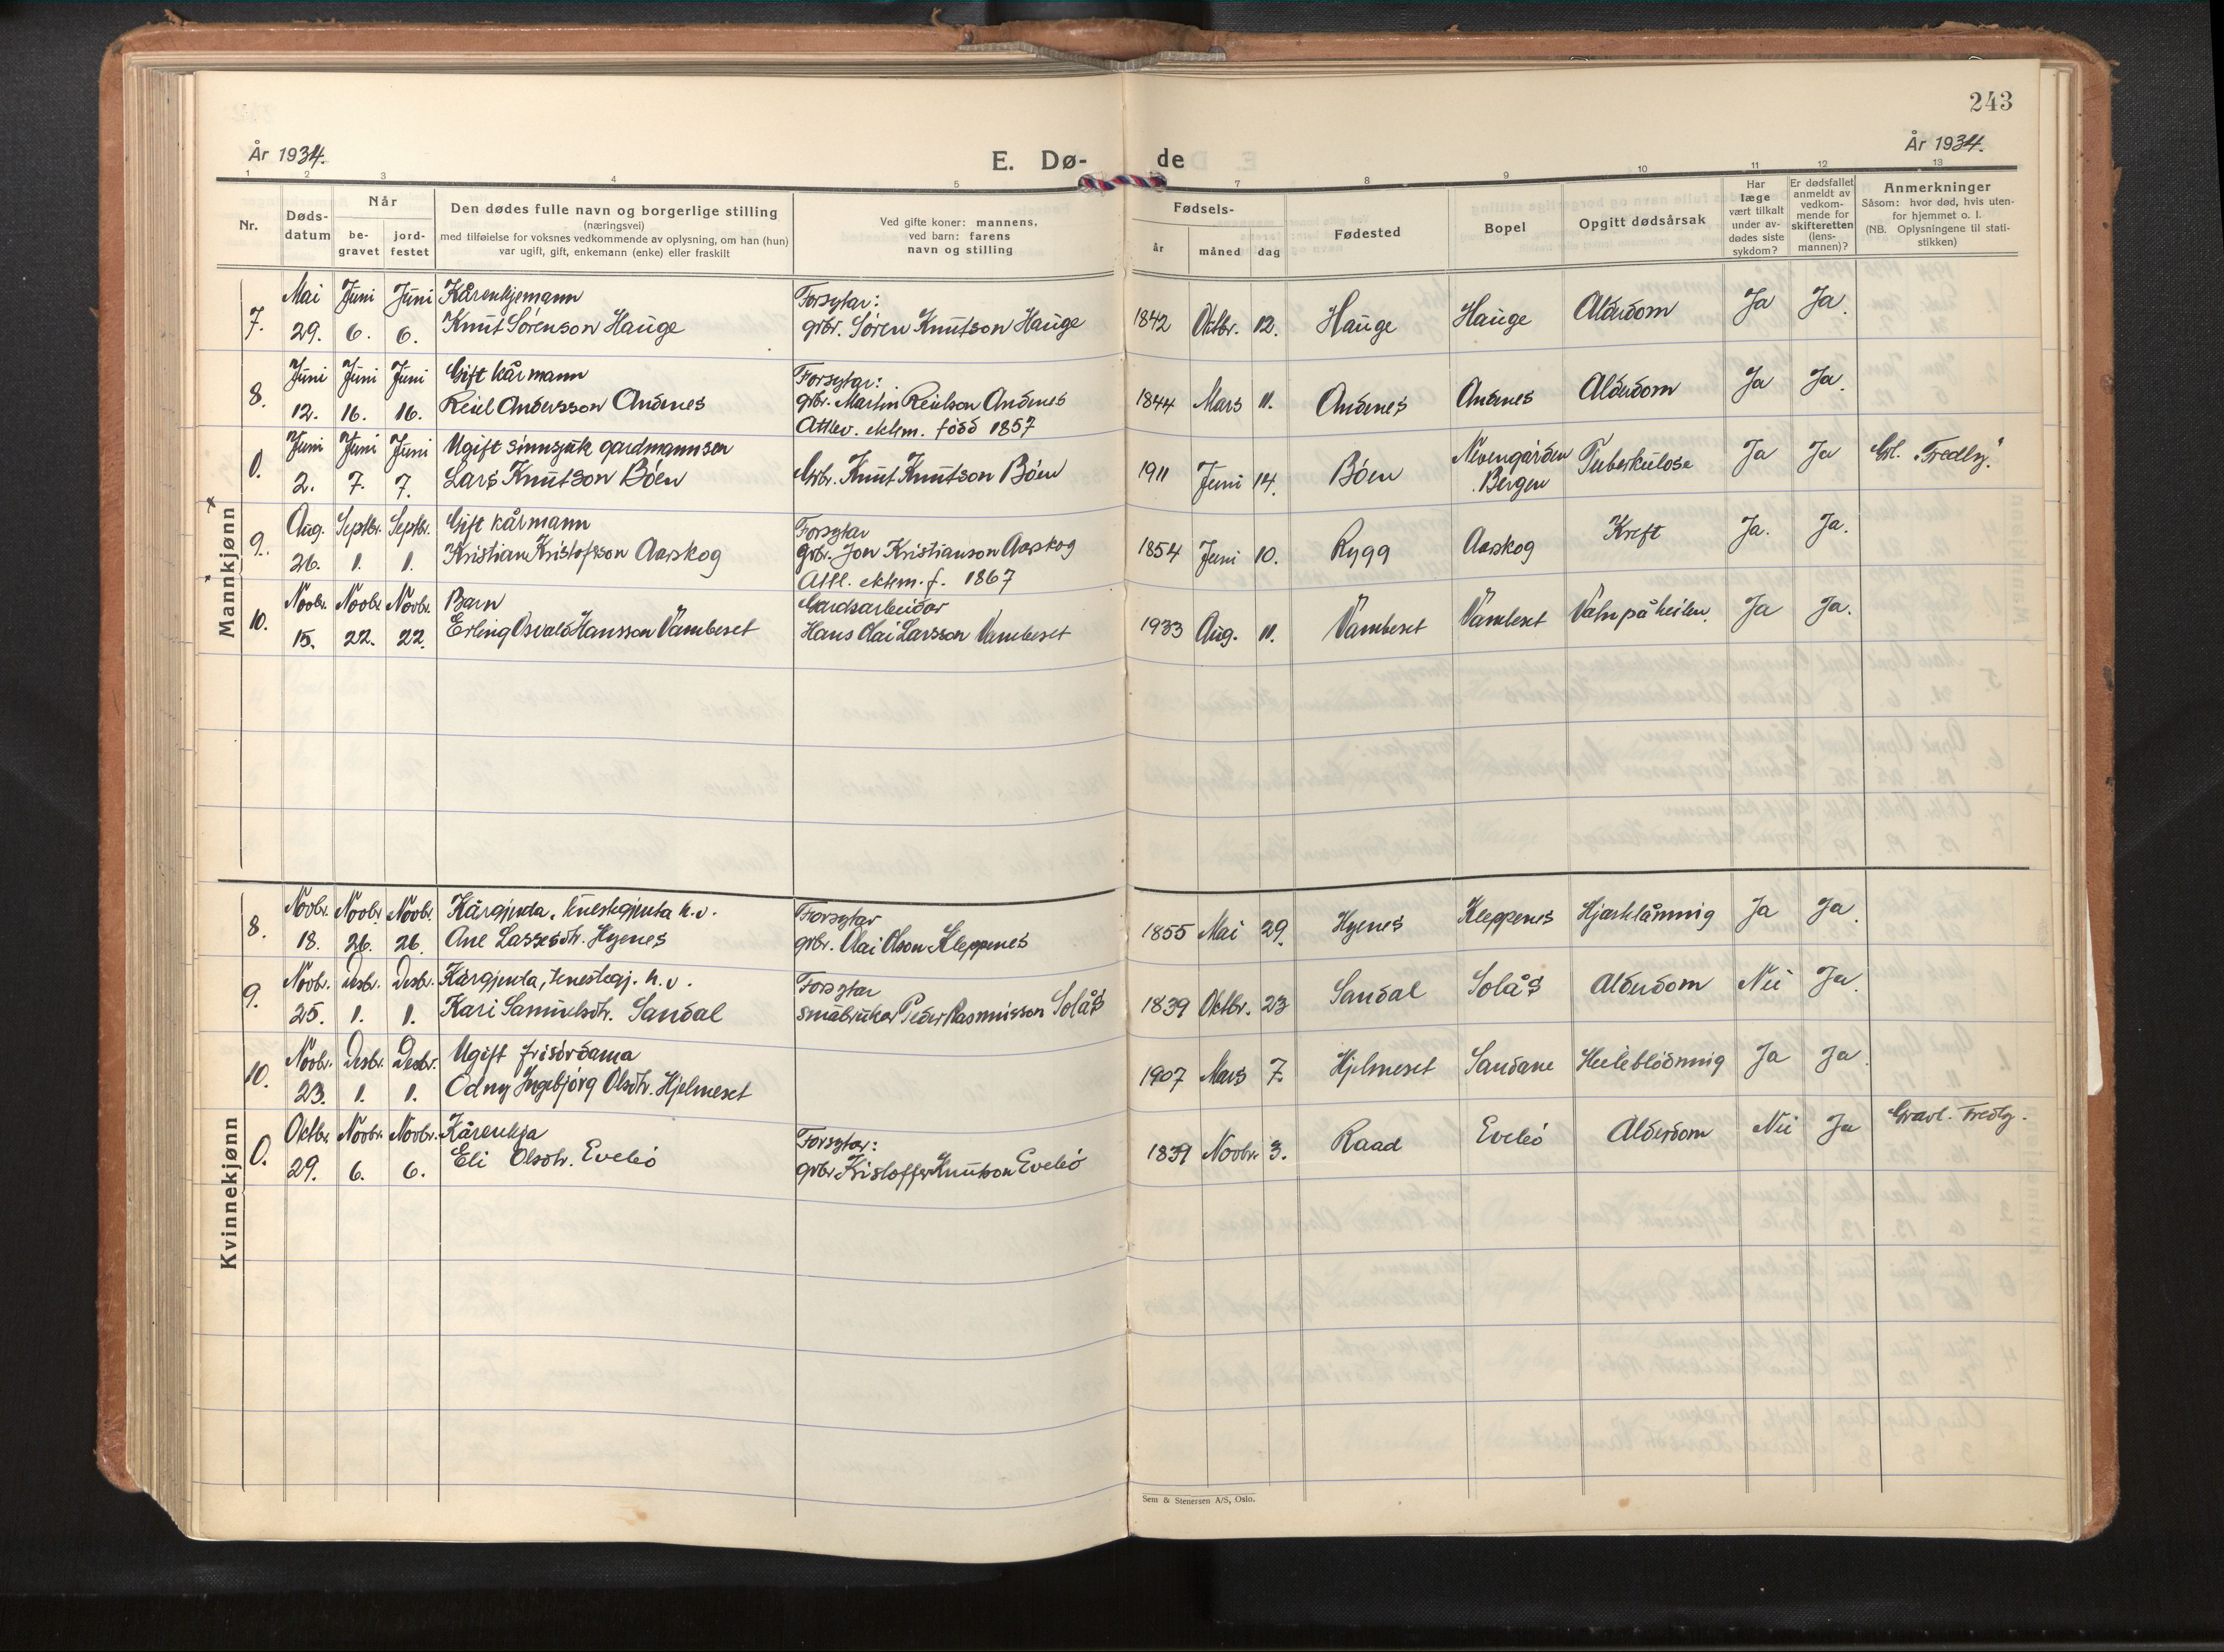 243
År 1934.
År 1934.
E. Dø- de
1 2 3 4 5 7 8 9 10 11 12 13
Nr.
Døds-
datum
Når
be-
gravet
jord-
festet
Den dødes fulle navn og borgerlige stilling
(næringsvei)
med tilføielse for voksnes vedkommende av oplysning, om han (hun)
var ugift, gift, enkemann (enke) eller fraskilt
Ved gifte koner: mannens,
ved barn: farens
navn og stilling
Fødsels-
år måned dag
Fødested
Bopel
Opgitt dødsårsak
Har
læge
vært tilkalt
under av-
dødes siste
sykdom?
Er dødsfallet
anmeldt av
vedkom-
mende for
skifteretten
(lens-
mannen)?
Anmerkninger
Såsom: hvor død, hvis uten-
for hjemmet o. l.
(NB. Oplysningene til stati-
stikken)
Mannkjønn
Mai Juni Juni Kårenkjemann Forsytar:
7. 29. 6. 6. Knut Sørenson Hauge grbr. Søren Knutson Hauge 1842 Oktbr. 12. Hauge Hauge Alderdom Ja Ja.
Juni Juni Juni Gift kårmann Forsytar:
8. 12. 16. 16. Reiel Andersson Andenes grbr. Martin Reielson Andenes 1844 Mars 11. Andenes Andenes Alderdom Ja Ja.
Attlev. ektem. fødd 1857
Juni Juni Juni Ugift sinnsjuk gardmannsson
0. 2. 7. 7. Lars Knutson Bøen Grbr. Knut Knutson Bøen 1911 Juni 14. Bøen Nevengården Bergen Tuberkulose Ja Ja Grl. "Fredly".
Aug. Septbr. Septbr. Gift kårmann Forsytar
9. 26. 1. 1. Kristian Kristofsson Aarskog grbr. Jon Kristianson Aarskog 1854 Juni 10. Rygg Aarskog Kreft Ja. Ja.
Attl. ektem. f. 1867
Novbr. Novbr. Novbr. Barn Gardsarbeidar
10. 15. 22. 22. Erling Osvald Hansson Vambeset Hans Olai Larsson Vambeset 1933 Aug. 11. Vambeset Vambeset Vatn på heilen. Ja Ja.
Kvinnekjønn
Novbr. Novbr. Novbr. Kårgjenta, tenestegjenta h.v. Forsytar
8. 18. 26. 26. Ane Lassesdtr. Hyenes grbr. Olai Olson Kleppenes 1855 Mai 29. Hyenes Kleppenes Hjarteläming Ja Ja.
Novbr. Desbr. Desbr. Kårgjenta, tenestegj. h.v. Forsytar
9. 25. 1. 1. Kari Samuelsdtr. Sandal småbrukar Peder Rasmusson Solås 1839 Oktbr. 23 Sandal Solås Alderdom Nei Ja.
Novbr. Desbr. Desbr. Ugift frisørdama
10. 23. 1. 1. Odny Ingebjørg Olsdtr. Hjelmeset 1907 Mars 7. Hjelmeset Sandane Heilebløding Ja Ja.
Oktbr. Novbr. Novbr. Kårenkja Forsytar:
0. 29. 6. 6. Eli Olsdtr. Evebø grbr Kristoffer Knutson Evebø 1839 Novbr. 3. Raad Evebø Alderdom Nei Ja Gravl. Fredly.
Sem & Stenersen A/S, Oslo.